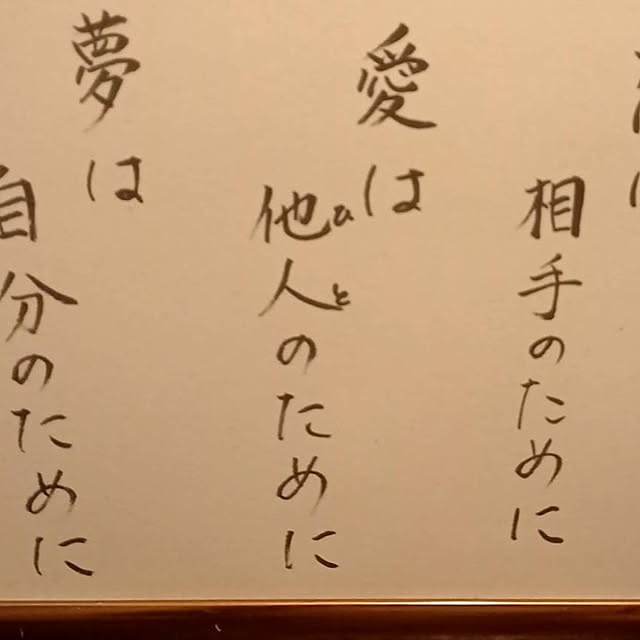 相手のために
愛は
他人のために
ひと
夢は
自分のために